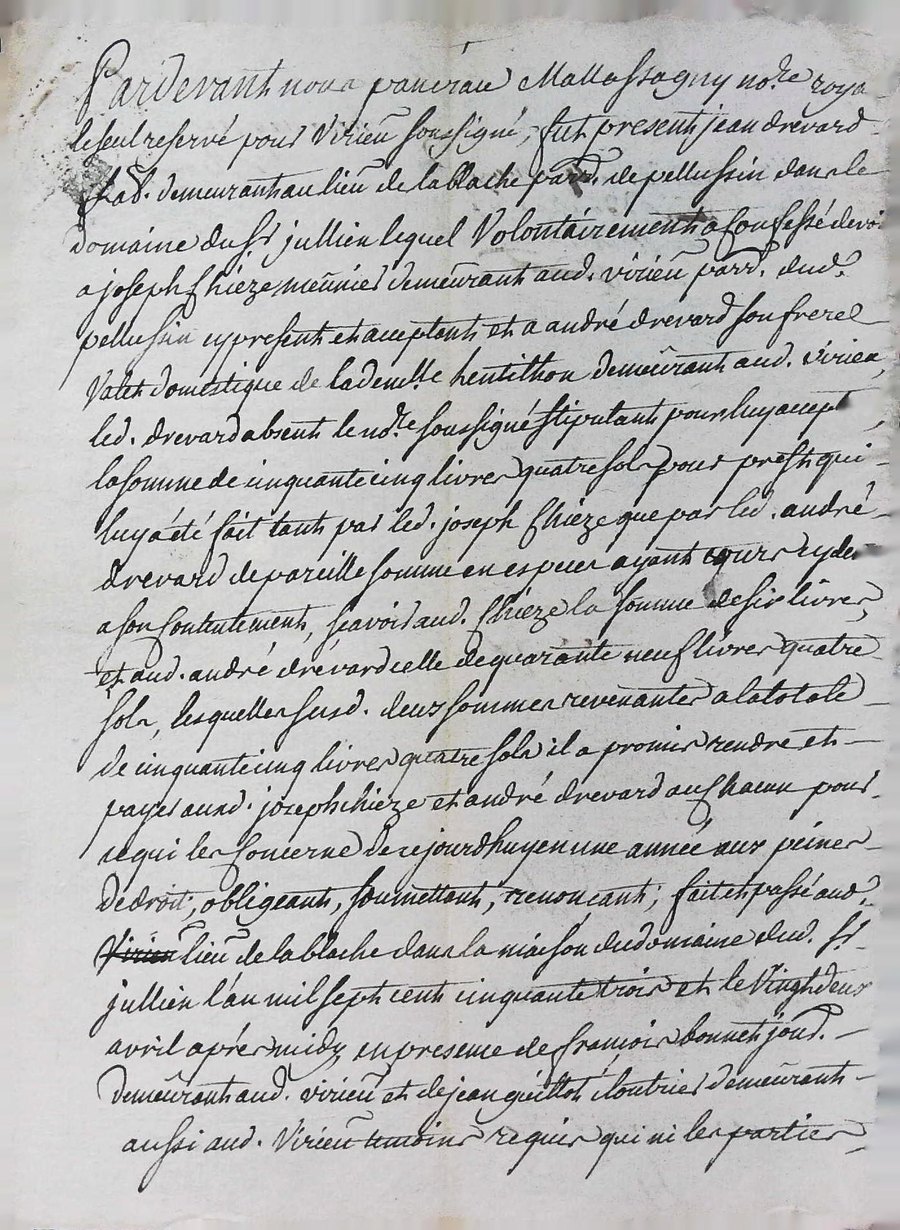 Pardevant nous pancrace Mallassagny no.re roya
le seul reservé pour Virieu soussigné, fut present jean drevard
hab. demeurant au lieu de la blache parr. de pellussin dans le
domaine du Sr jullien lequel Volontairement a Confessé devoir
a joseph Chieze meûnier demeurant aud. virieu parr. dud.
pellussin cy present et acceptant et a andré drevard son frere
Valet domestique de la dem.lle hentilhon demeurant aud. virieu,
led. drevard absent le no.re soussigné stipulant pour luy accept
la somme de cinquante cinq livres quatre sols pour prest qui
luy a été fait tant par led. joseph Chieze que par led. andré
drevard de pareille somme en especes ayant cours cy des
a son Contentement, scavoir aud. Chieze la somme de six livres,
et aud. andré drévard celle de quarante neuf livres quatre
sols, lesquelles susd. deux sommes revenantes a la totale
de cinquante cinq livres quatre sols il a promis rendre et
payer auxd. joseph chieze et andré drevard a un Chacun pour
ce qui les Concerne de ce jourdhuy en une année aux peines
de droit, obligeant, soumettant, renoncant; fait et passé aud.
Virieu lieu de la blache dans la maison du domaine dud. Sr
jullien l'an mil sept cent cinquante trois et le Vingt deux
avril aprés midy en presence de francois bonnet jour.
demeurant aud. virieu et de jean cloutrier demeurant
aussi aud. Virieu temoins requis qui ni les parties